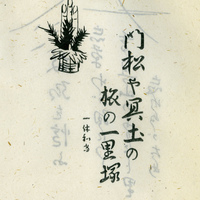 門松や冥土の
旅の一里塚
一休和尚